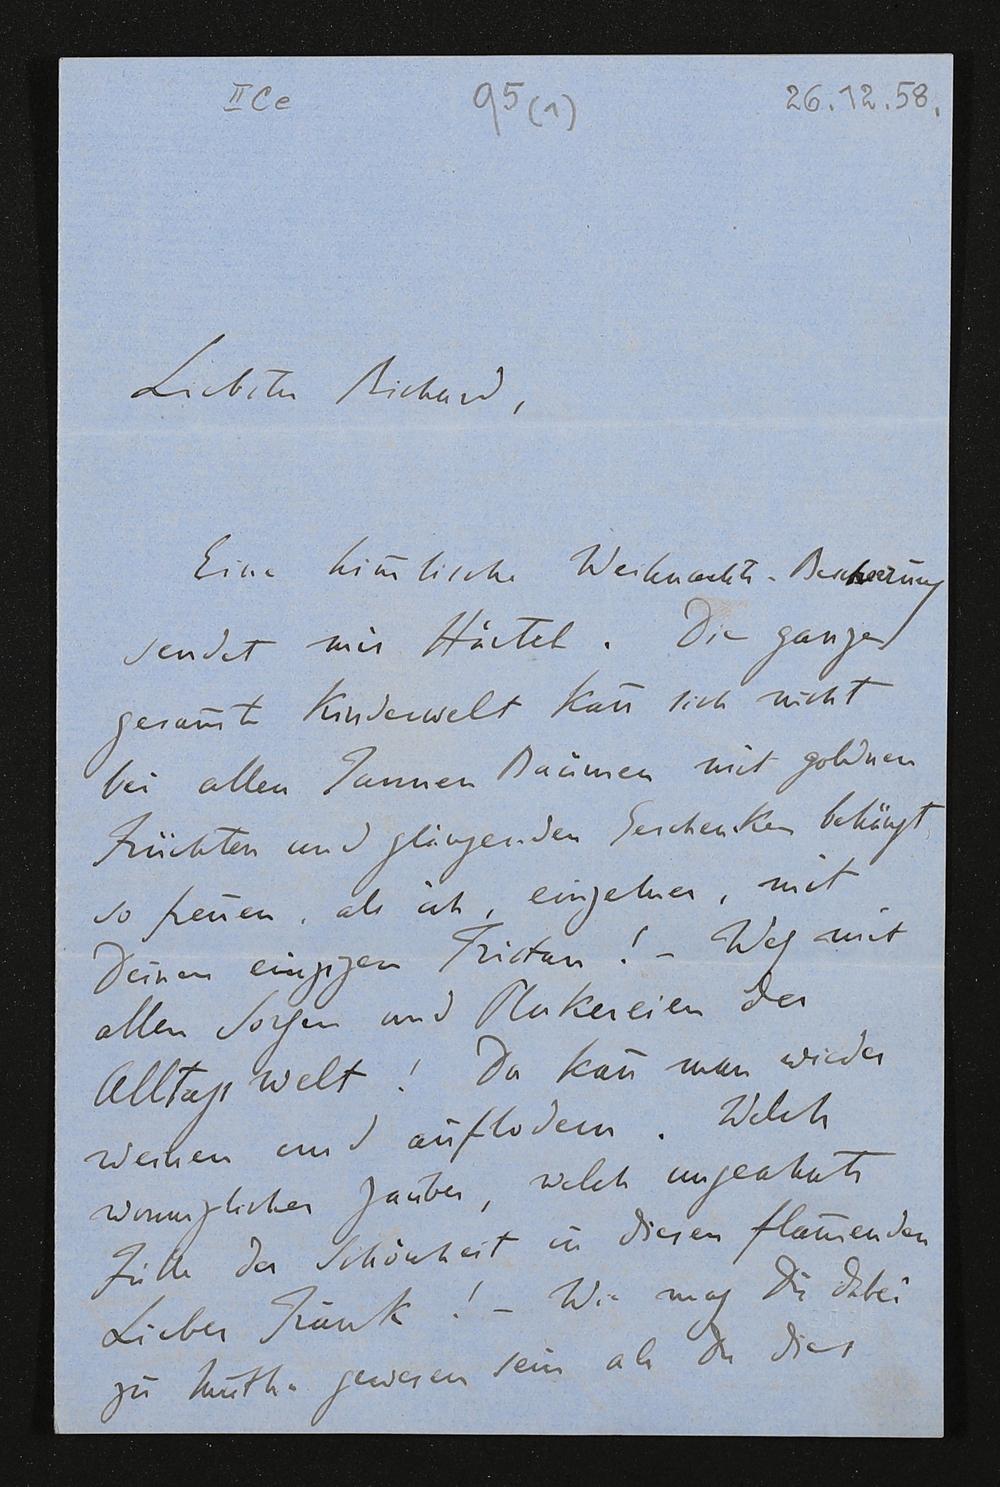 IICe 95(1) 26.12.58.
Liebster Richard,
Eine him̄lische Weihnachts-Bescheerung
sendet mir Härtel. Die ganze
gesam̄te Kinderwelt kan̄ sich nicht
bei allen Tannen Bäumen mit goldnen
Früchten und glänzenden Geschenken behängt
so freuen, als ich, einzelner, mit
Deinen einzigen Tristan! – Weg mit
allen Sorgen und Plakereien der
Alltagswelt! Da kan̄ man wieder
weinen und auflodern. Welch
wonniglicher Zauber, welch ungeahnte
Fülle der Schönheit in diesen flam̄enden
Liebes Trank! – Wie mag Dir dabei
zu Muthe gewesen sein als Du dies